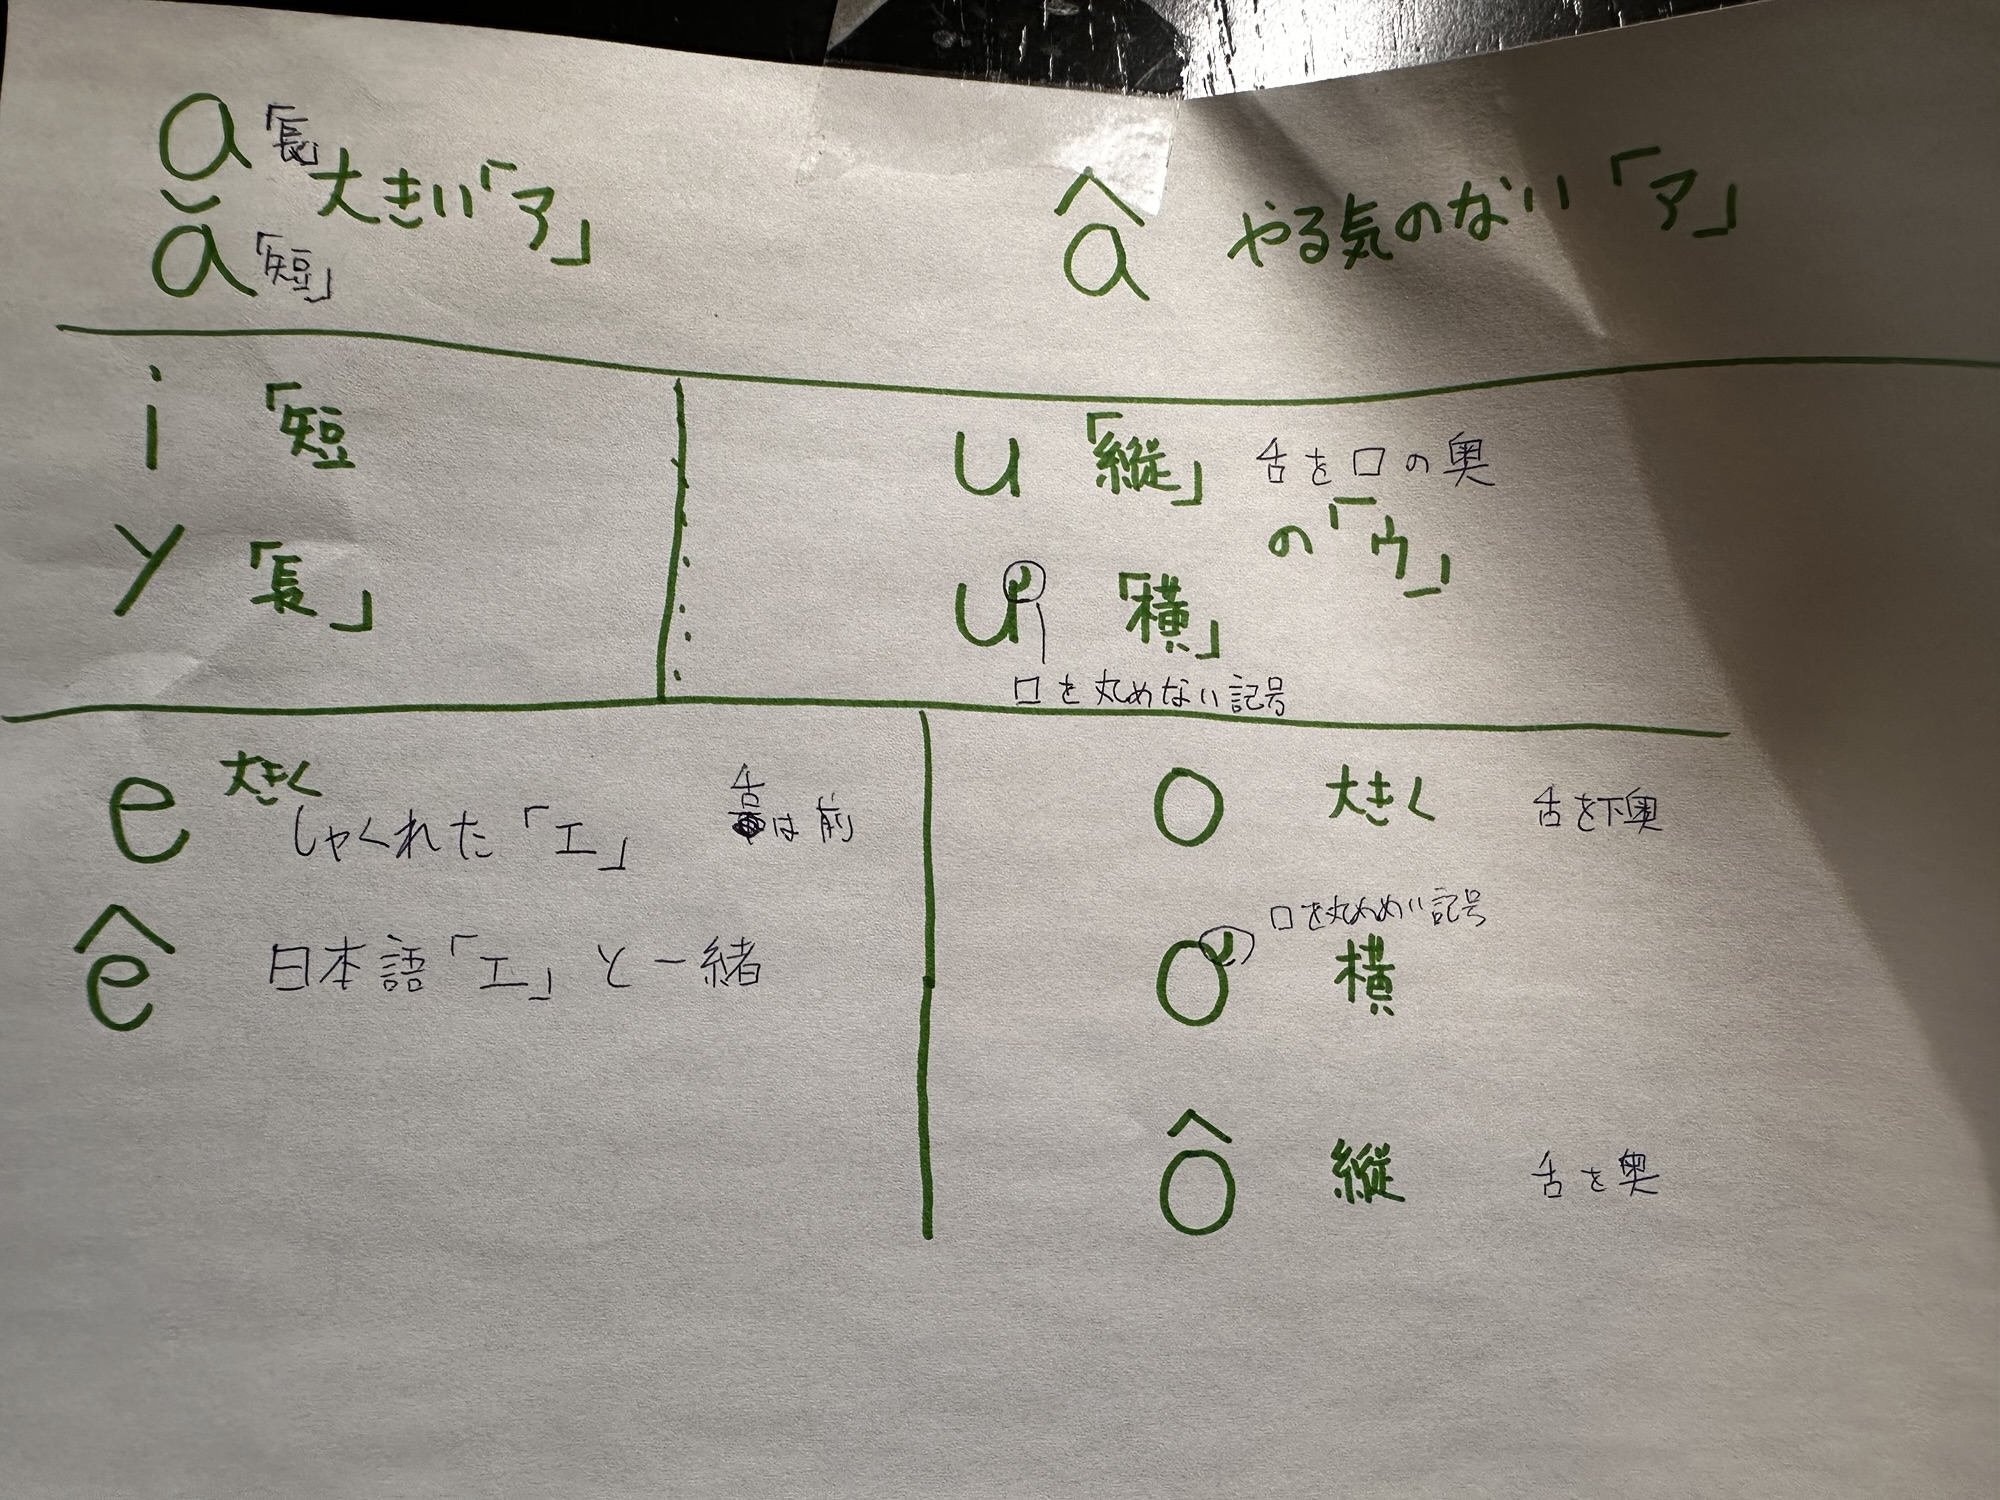 a 「長」
大きい「ア」
ă 「短」
â やる気のない「ア」
i 「短
y 「長」
u 「縦」 舌を口の奥
の「ウ」
ư 「横」
口を丸めない記号
e 大きく
しゃくれた「エ」 舌は前
ê 日本語「エ」と一緒
o 大きく 舌を下奥
口を丸めない記号
ơ 横
ô 縦 舌を奥